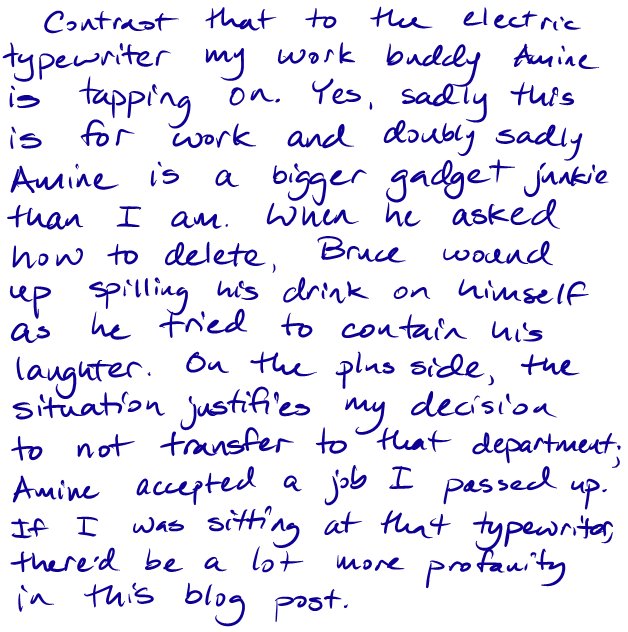 Contrast that to the electric
typewriter my work buddy Amine
is tapping on. Yes, sadly this
is for work and doubly sadly
Amine is a bigger gadget junkie
than I am. When he asked
how to delete, Bruce wound
up spilling his drink on himself
as he tried to contain his
laughter. On the plus side, the
situation justifies my decision
to not transfer to that department;
Amine accepted a job I passed up.
If I was sitting at that typewriter,
there'd be a lot more profanity
in this blog post.